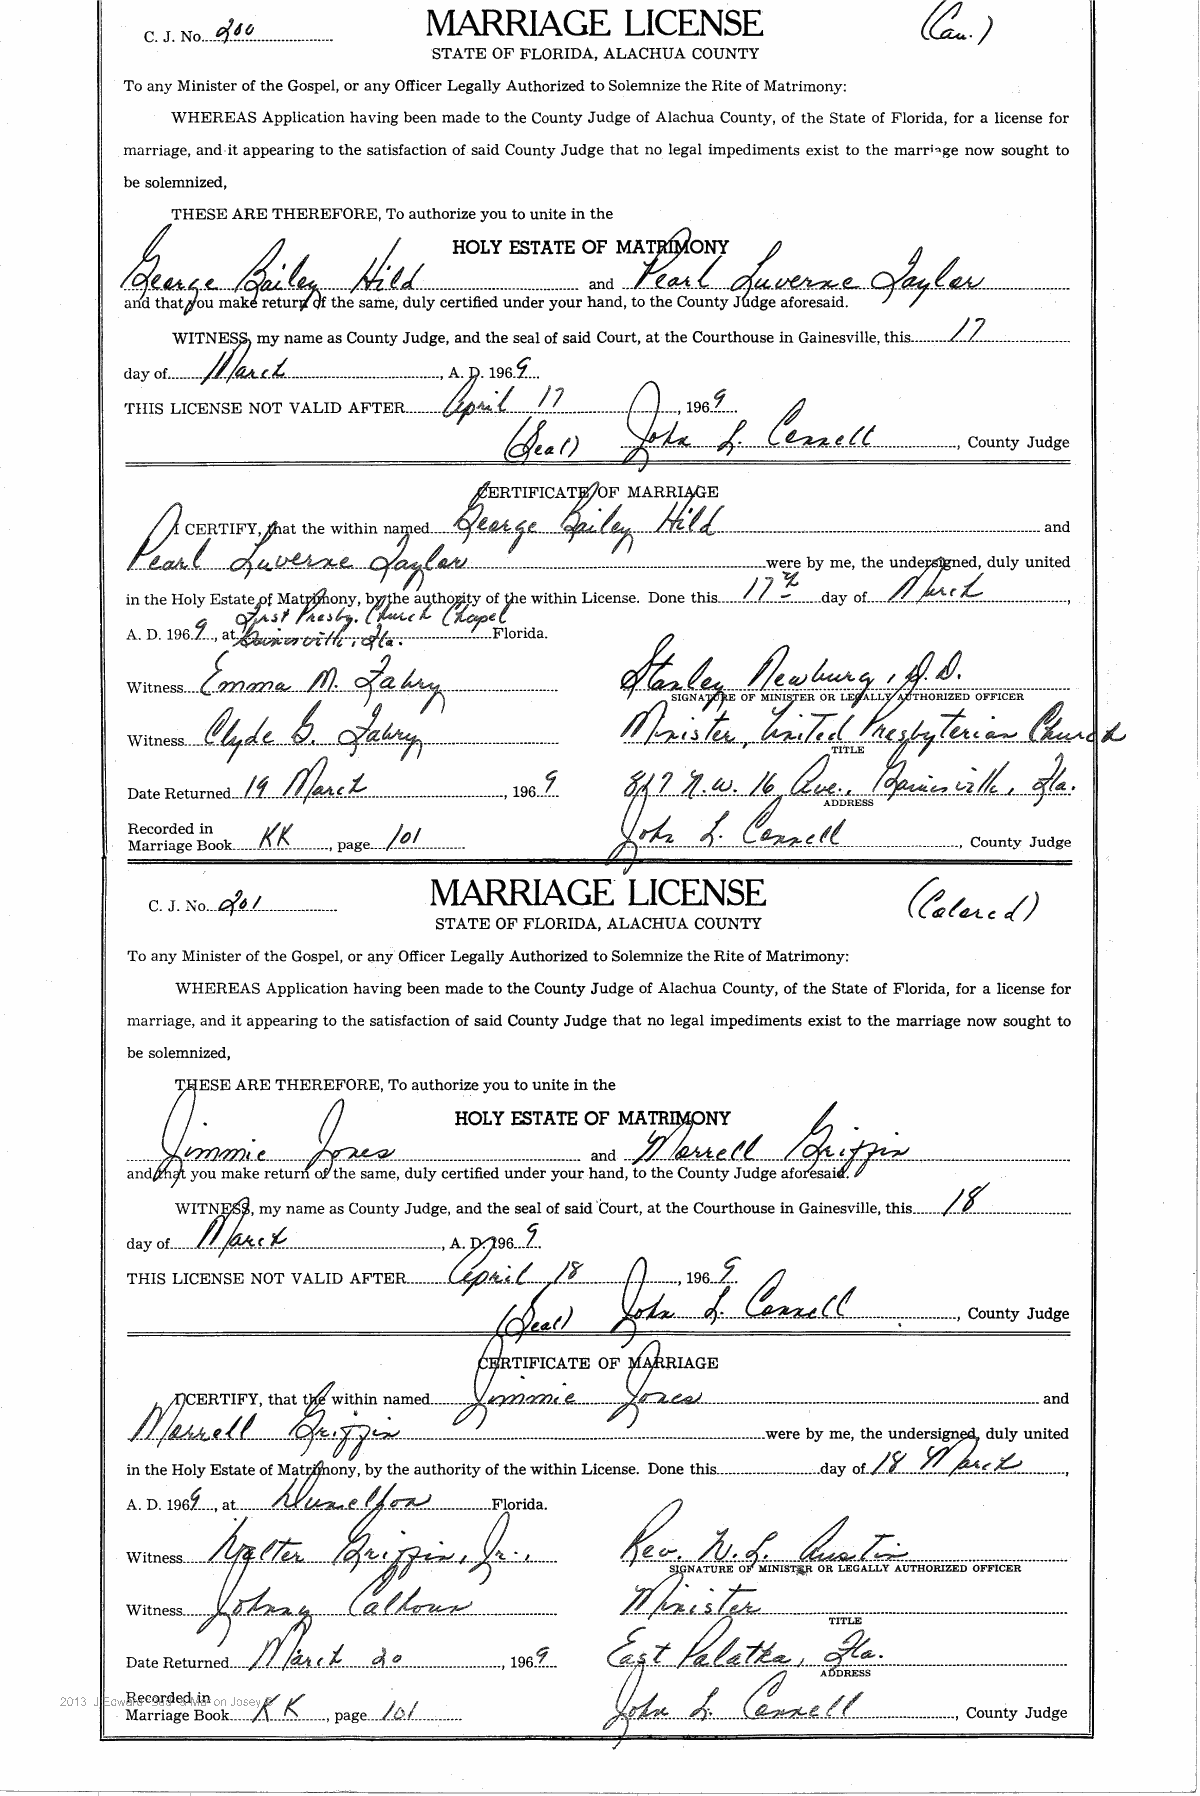 C. J. No. 200 MARRIAGE LICENSE (Cau.)
STATE OF FLORIDA, ALACHUA COUNTY
To any Minister of the Gospel, or any Officer Legally Authorized to Solemnize the Rite of Matrimony:
WHEREAS Application having been made to the County Judge of Alachua County, of the State of Florida, for a license for
marriage, and it appearing to the satisfaction of said County Judge that no legal impediments exist to the marriage now sought to
be solemnized,
THESE ARE THEREFORE, To authorize you to unite in the
HOLY ESTATE OF MATRIMONY
George Bailey Hild and Pearl Luverne Taylor
and that you make return of the same, duly certified under your hand, to the County Judge aforesaid.
WITNESS, my name as County Judge, and the seal of said Court, at the Courthouse in Gainesville, this 17
day of March, A. D. 1969
THIS LICENSE NOT VALID AFTER April 17, 1969
(Seal) John L. Connell, County Judge
CERTIFICATE OF MARRIAGE
I CERTIFY, that the within named George Bailey Hild and
Pearl Luverne Taylor were by me, the undersigned, duly united
in the Holy Estate of Matrimony, by the authority of the within License. Done this 17th day of March,
First Presby. Church Chapel
A. D. 1969, at Gainesville, Fla. Florida.
Witness Emma M. Fahry Stanley Newburg, D.D.
SIGNATURE OF MINISTER OR LEGALLY AUTHORIZED OFFICER
Witness Clyde G. Fahry Minister, United Presbyterian Church
TITLE
Date Returned 19 March, 1969 817 N.W. 16 Ave., Gainesville, Fla.
ADDRESS
Recorded in
Marriage Book KK, page 101 John L. Connell, County Judge
C. J. No. 201 MARRIAGE LICENSE (Colored)
STATE OF FLORIDA, ALACHUA COUNTY
To any Minister of the Gospel, or any Officer Legally Authorized to Solemnize the Rite of Matrimony:
WHEREAS Application having been made to the County Judge of Alachua County, of the State of Florida, for a license for
marriage, and it appearing to the satisfaction of said County Judge that no legal impediments exist to the marriage now sought to
be solemnized,
THESE ARE THEREFORE, To authorize you to unite in the
HOLY ESTATE OF MATRIMONY
Jimmie Jones and Morrell Griffin
and that you make return of the same, duly certified under your hand, to the County Judge aforesaid.
WITNESS, my name as County Judge, and the seal of said Court, at the Courthouse in Gainesville, this 18
day of March, A. D. 1969
THIS LICENSE NOT VALID AFTER April 18, 1969
(Seal) John L. Connell, County Judge
CERTIFICATE OF MARRIAGE
I CERTIFY, that the within named Jimmie Jones and
Morrell Griffin were by me, the undersigned, duly united
in the Holy Estate of Matrimony, by the authority of the within License. Done this day of 18 March,
A. D. 1969, at Dunellon Florida.
Witness Walter Griffin, Jr., Rev. N. L. Austin
SIGNATURE OF MINISTER OR LEGALLY AUTHORIZED OFFICER
Witness Johnny Calhoun Minister
TITLE
Date Returned March 20, 1969 East Palatka, Fla.
ADDRESS
Recorded in
Marriage Book KK, page 101 John L. Connell, County Judge